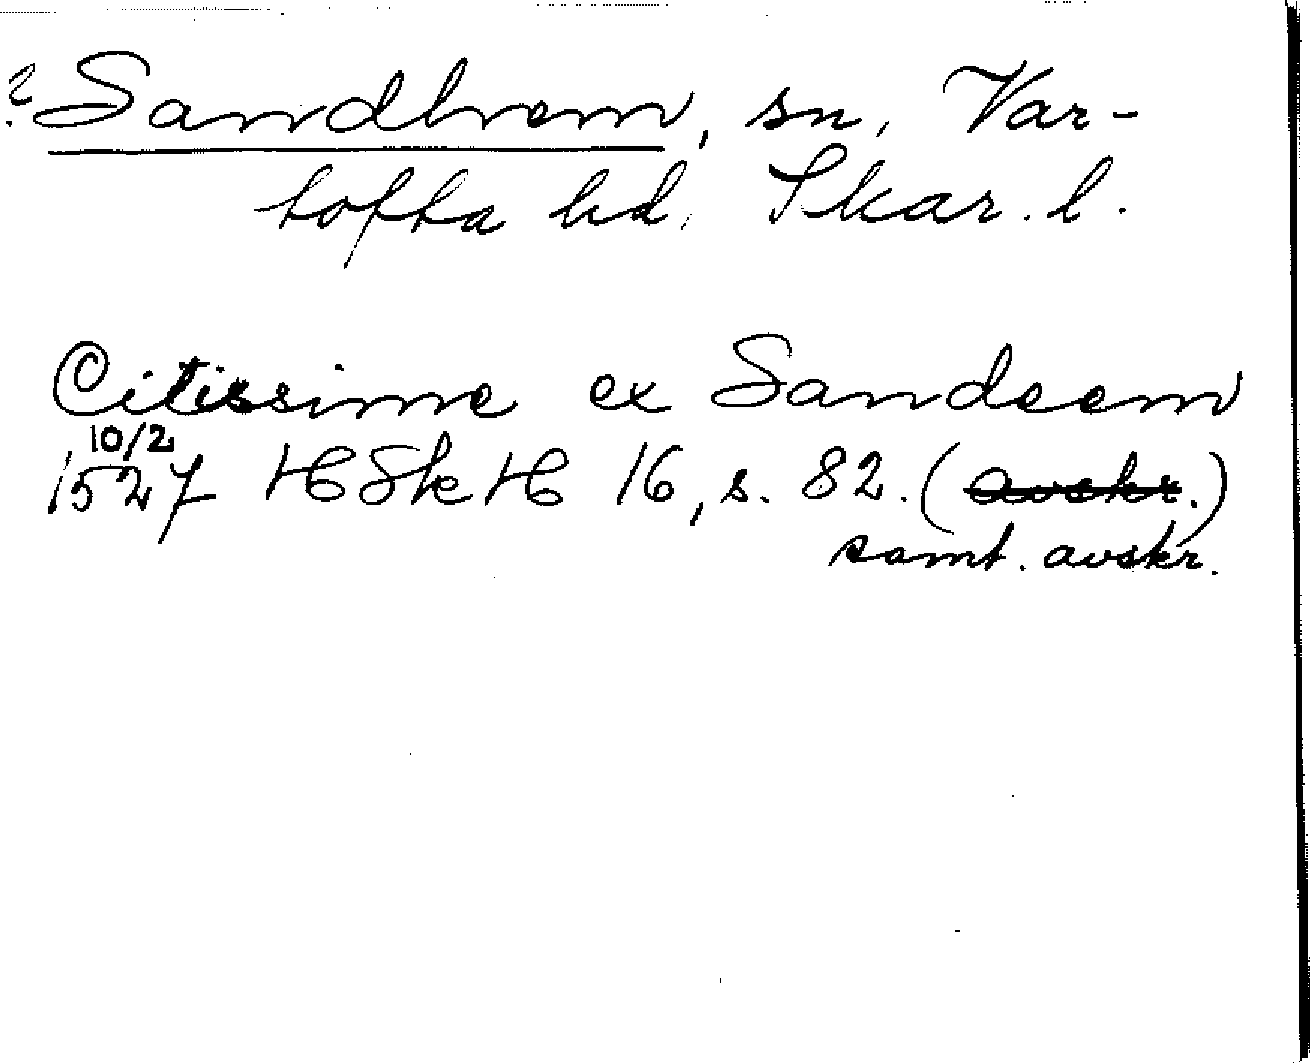 ? Sandhem, sn, Var-
tofta hd, Skar. l.
Citissime ex Sandeem
10/2
1527 HSkH 16, s. 82. (avskr.)
samt. avskr.